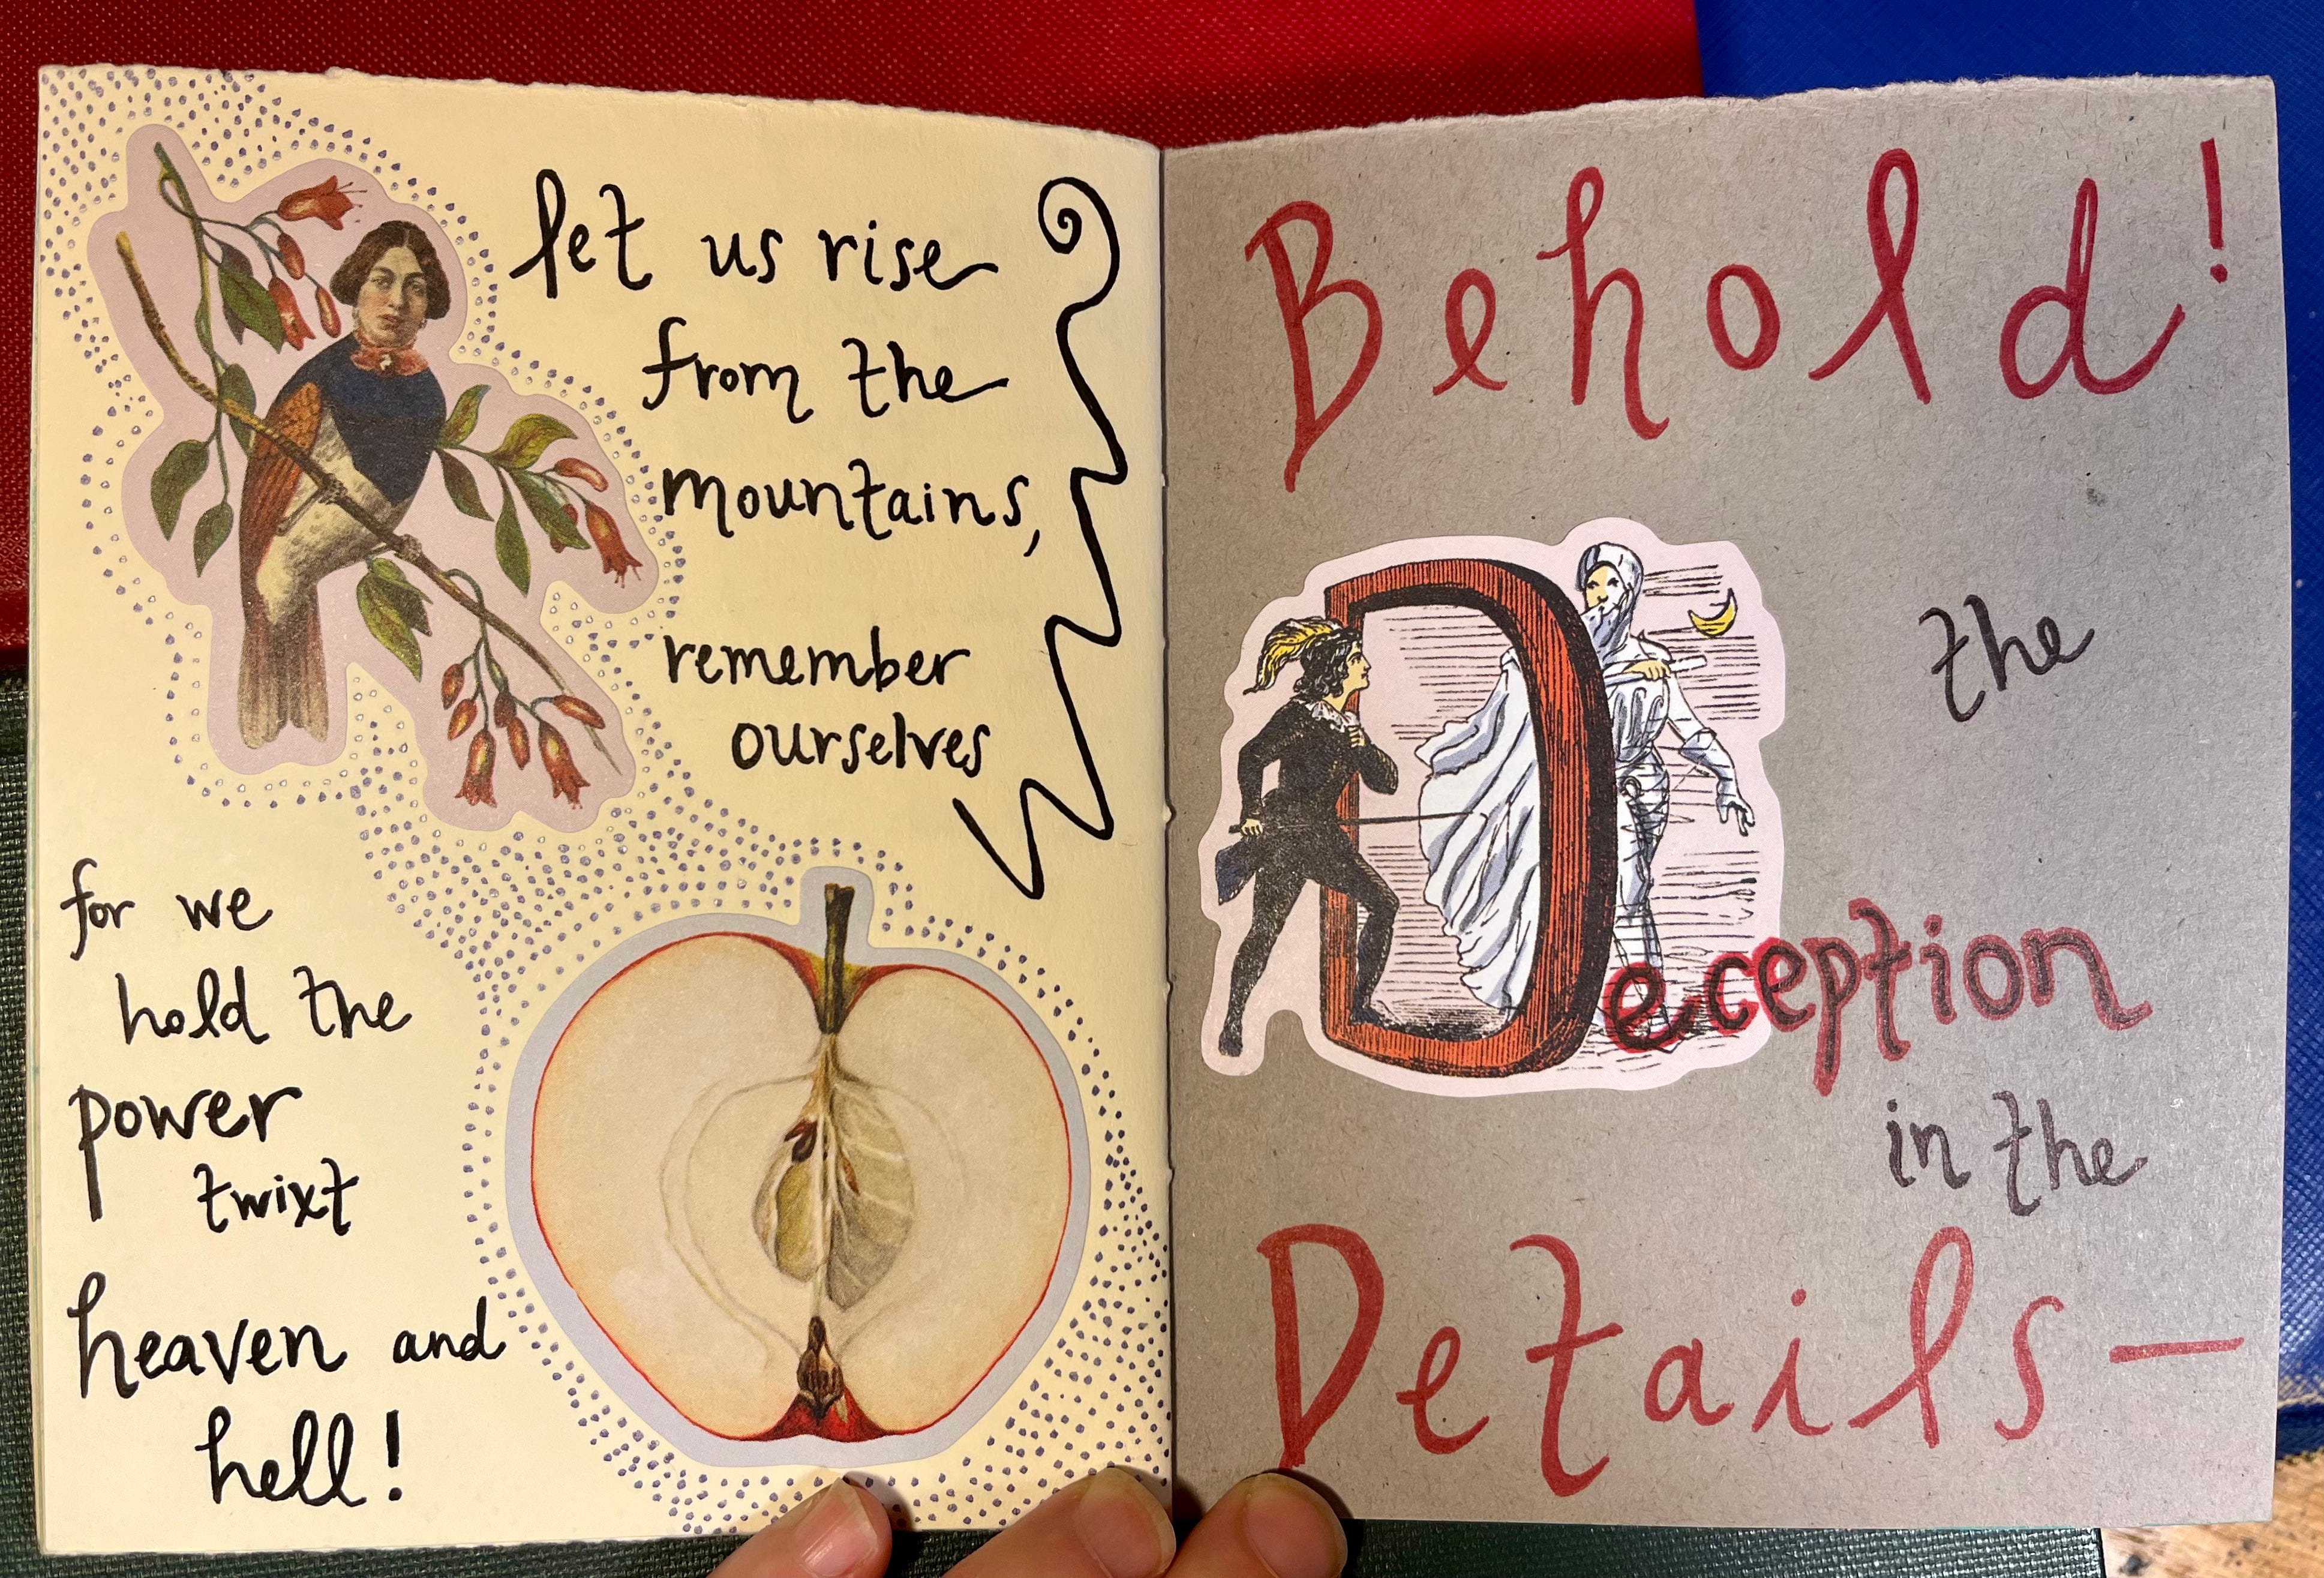 let us rise
from the
mountains,
remember
ourselves
for we
hold the
power
twixt
heaven and
hell!
Behold!
the
Deception
in the
Details—